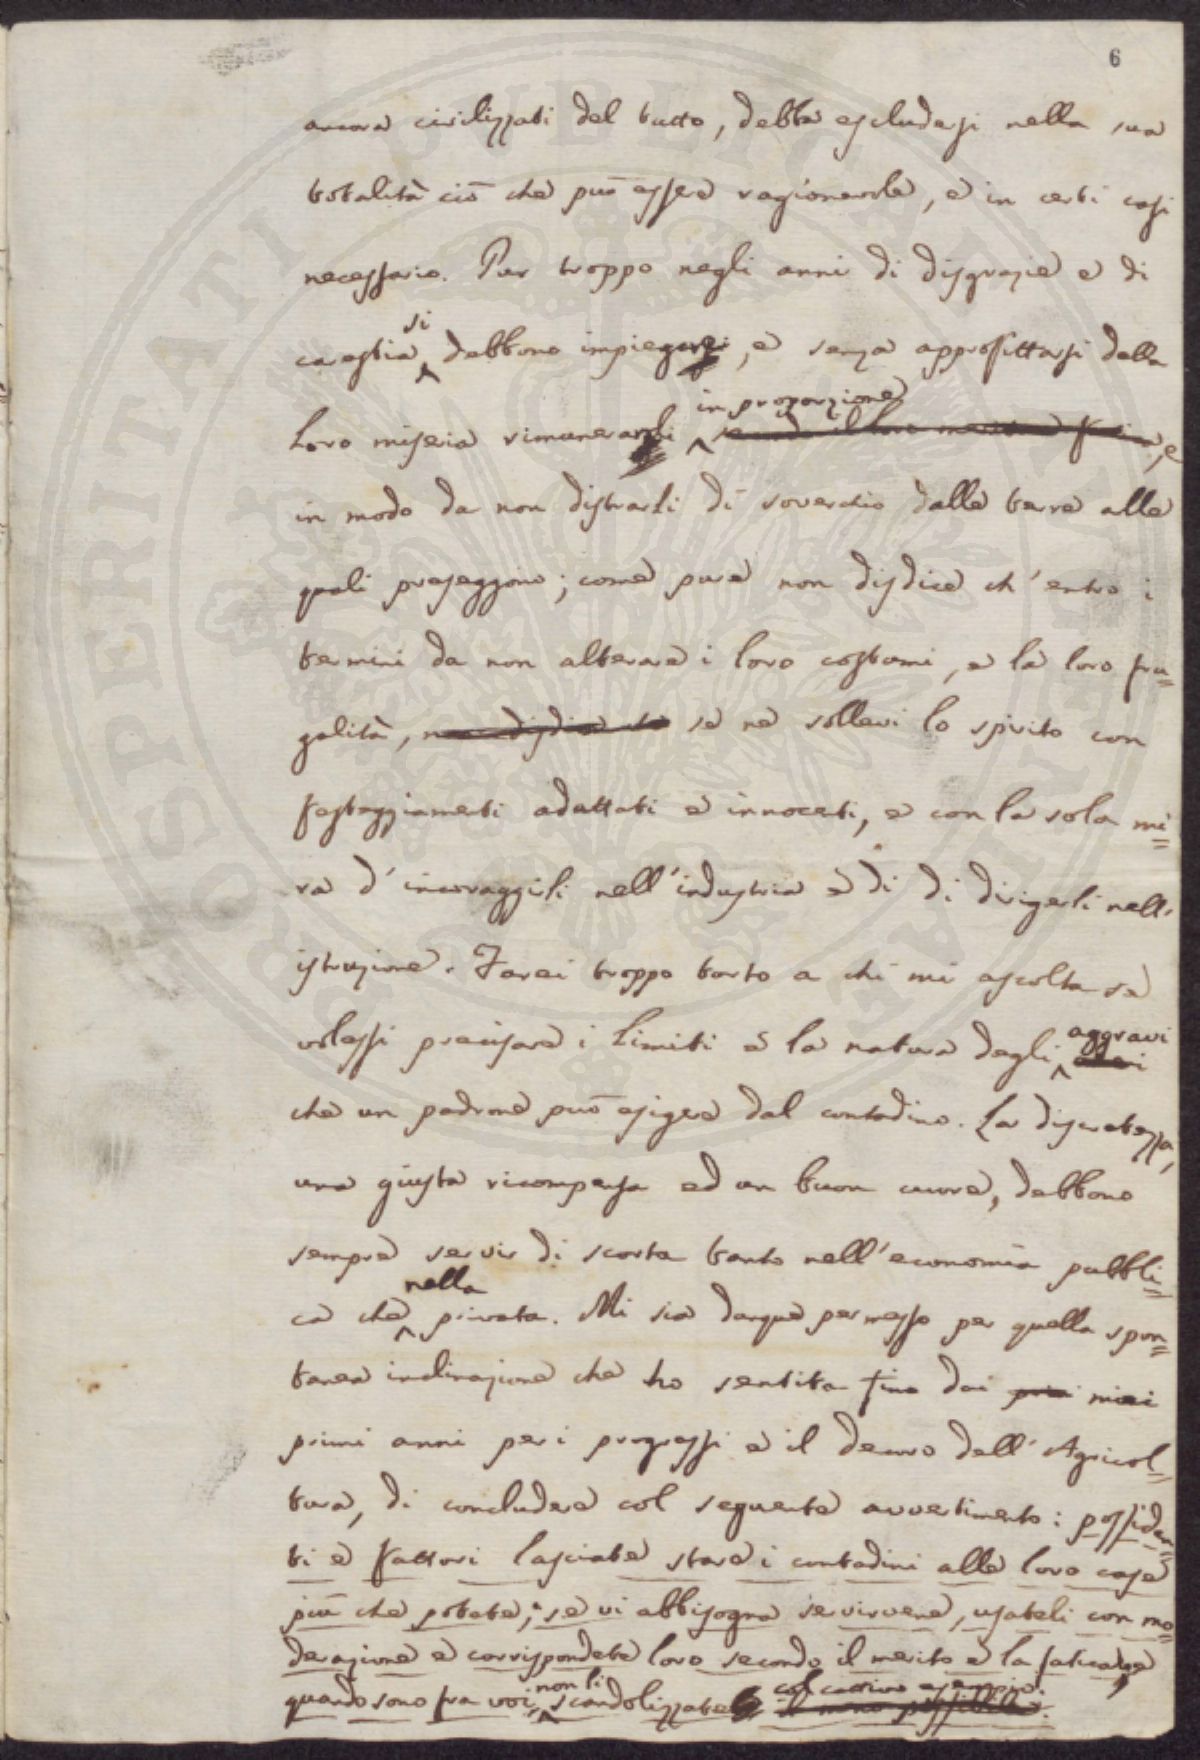 6
ancora civilizzati del tutto, debba escludersi nella sua
totalità ciò che può essere ragionevole, e in certi casi
necessario. Pur troppo negli anni di disgrazie e di
carestia si debbono impiegare, e senza approfittarsi della
loro miseria rimunerarli in proporzione, e
in modo da non distrarli di soverchio dalle terre alle
quali preseggono; come pure non disdice ch'entro i
termini da non alterare i loro costumi, e la loro fru=
galità, non disdice se ne sollevi lo spirito con
festeggiamenti adattati e innocenti, e con la sola mi=
ra d'incoraggirli nell'industria e di di dirigerli nell'
istruzione. Farei troppo torto a chi mi ascolta se
volessi precisare i limiti e la natura degli aggravi
che un padrone può esigere dal contadino. La discretezza,
una giusta ricompensa ed un buon cuore, debbono
sempre servir di scorta tanto nell'economia pubbli=
ca che nella privata. Mi sia dunque permesso per quella spon=
tanea inclinazione che ho sentita fino dai miei
primi anni per i progressi e il decoro dell'Agricol=
tura, di concludere col seguente avvertimento: possiden=
ti e fattori lasciate stare i contadini alle loro case
più che potete; se vi abbisogna servirvene, usateli con mo=
derazione e corrispondete loro secondo il merito e la fatica, e
quando sono fra voi, non li scandolizzate col cattivo esempio.
PROSPERITATI PUBLICAE